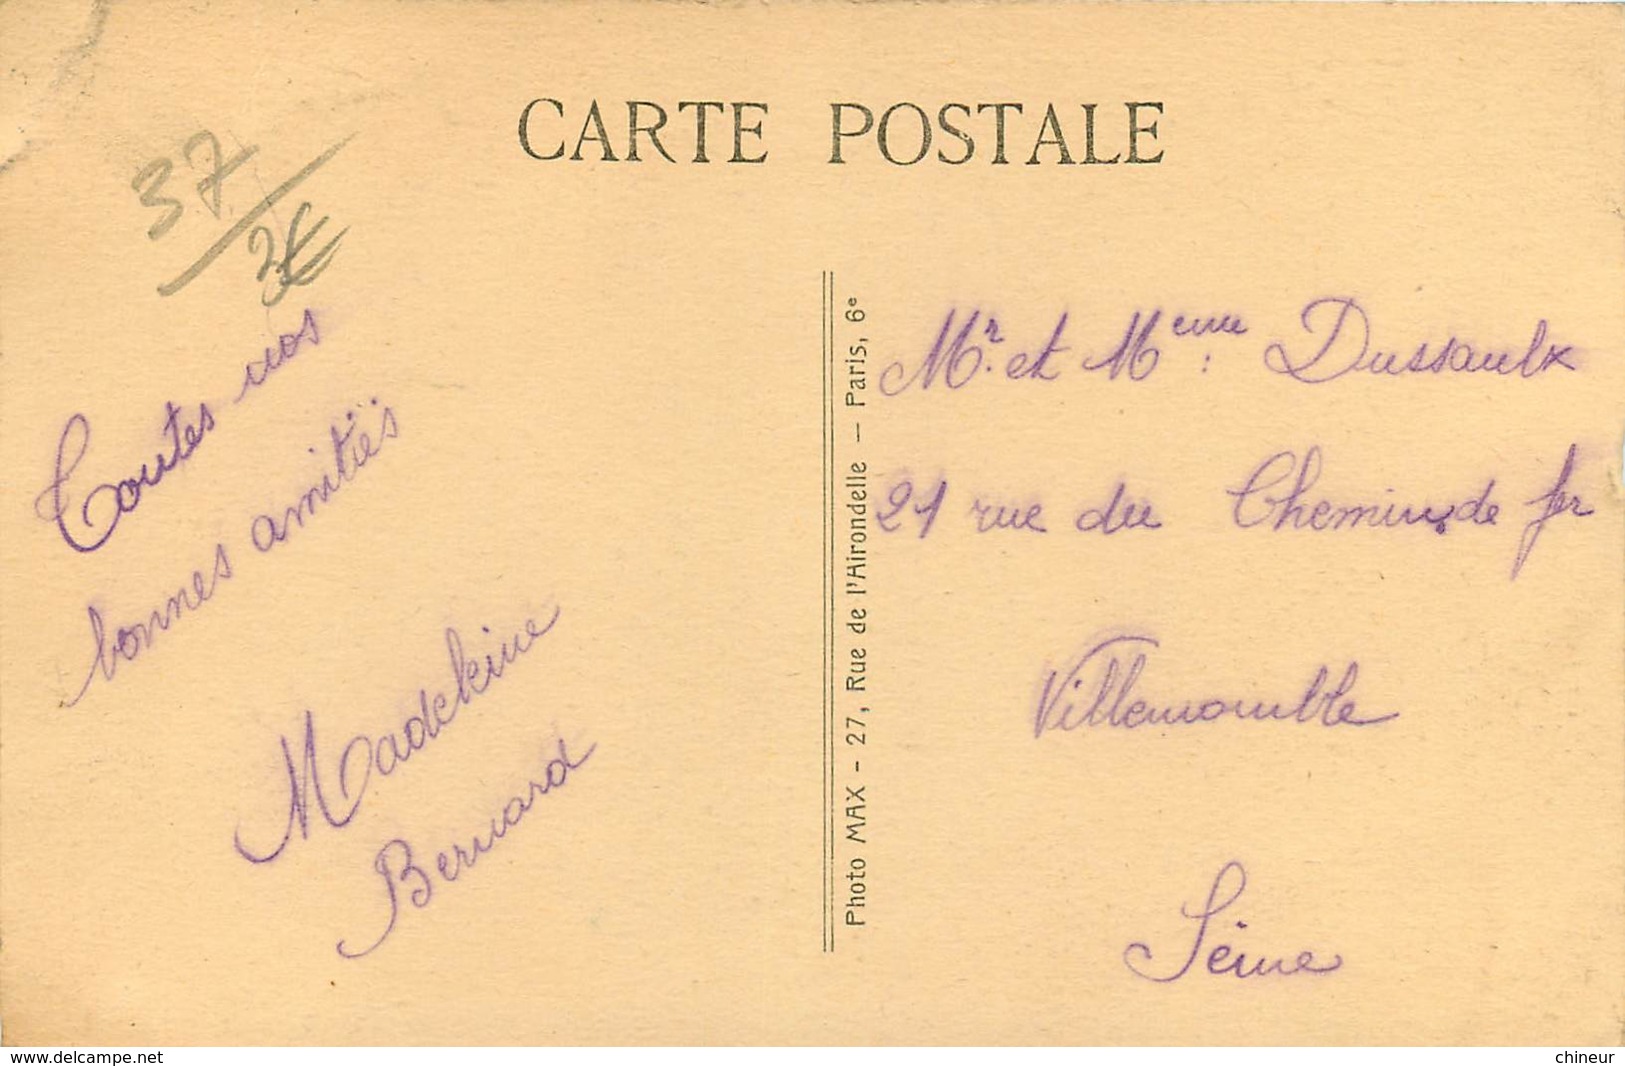 CARTE POSTALE
37
3€
Toutes nos
bonnes amitiés
Madeleine
Bernard
Photo MAX - 27, Rue de l'Airondelle — Paris, 6e
Mr. et Meme : Dussaulx
21 rue du Chemin de fer
Villemomble
Seine
www.delcampe.net
chineur